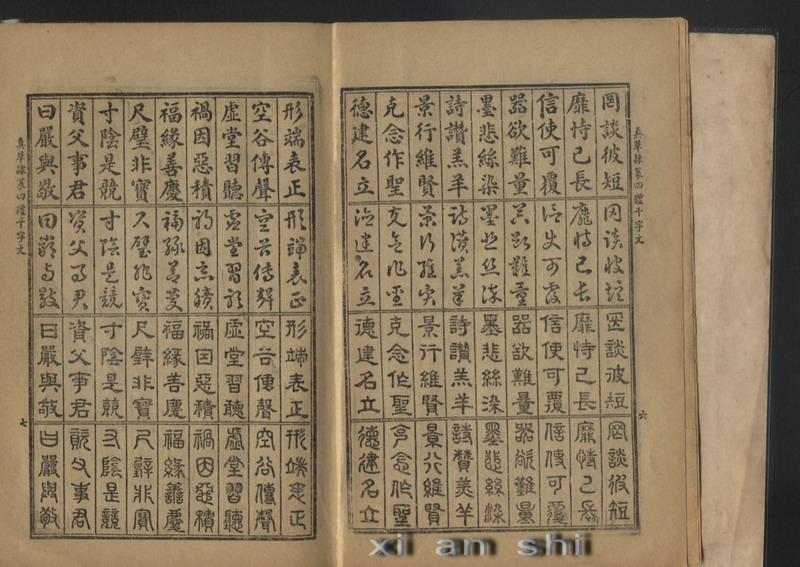 真草隸篆四體千字文
罔談彼短 罔談彼短 罔談彼短 罔談彼短
靡恃己長 靡恃己長 靡恃己長 靡恃己長
信使可覆 信使可覆 信使可覆 信使可覆
器欲難量 器欲難量 器欲難量 器欲難量
墨悲絲染 墨悲絲染 墨悲絲染 墨悲絲染
詩讚羔羊 詩讚羔羊 詩讚羔羊 詩讚羔羊
景行維賢 景行維賢 景行維賢 景行維賢
克念作聖 克念作聖 克念作聖 克念作聖
德建名立 德建名立 德建名立 德建名立
六
形端表正 形端表正 形端表正 形端表正
空谷傳聲 空谷傳聲 空谷傳聲 空谷傳聲
虛堂習聽 虛堂習聽 虛堂習聽 虛堂習聽
禍因惡積 禍因惡積 禍因惡積 禍因惡積
福緣善慶 福緣善慶 福緣善慶 福緣善慶
尺璧非寶 尺璧非寶 尺璧非寶 尺璧非寶
寸陰是競 寸陰是競 寸陰是競 寸陰是競
資父事君 資父事君 資父事君 資父事君
曰嚴與敬 曰嚴與敬 曰嚴與敬 曰嚴與敬
真草隸篆四體千字文
七
xi an shii